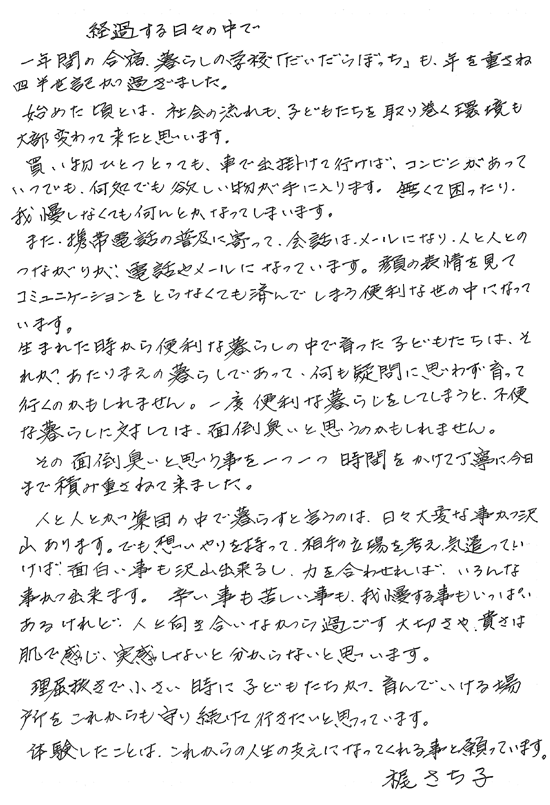 経過する日々の中で
一年間の合宿、暮らしの学校「だいだらぼっち」も、年を重さね
四半世記が過ぎました。
始めた頃とは、社会の流れも、子どもたちを取り巻く環境も
大部変わって来たと思います。
買い物ひとつとっても、車で出掛けて行けば、コンビニがあって
いつでも、何処でも欲しい物が手に入ります。無くて困ったり、
我慢しなくても何んとかなってしまいます。
また、携帯電話の普及に寄って、会話は、メールになり、人と人との
つながりが、電話やメールになっています。顔の表情を見て
コミュニケーションをとらなくても済んでしまう便利な世の中になって
います。
生まれた時から便利な暮らしの中で育った子どもたちは、そ
れが、あたりまえの暮らしであって、何も疑問に思わず育って
行くのかもしれません。一度便利な暮らしをしてしまうと、不便
な暮らしに対しては、面倒臭いと思うのかもしれません。
その面倒臭いと思う事を一つ一つ時間をかけて丁寧に今日
まで積み重さねて来ました。
人と人とが集団の中で暮らすと言うのは、日々大変な事が沢
山あります。でも想いやりを持って、相手の立場を考え、気遣ってい
けば、面白い事も沢山出来るし、力を合わせれば、いろんな
事が出来ます。辛い事も苦しい事も、我慢する事もいっぱい
あるけれど、人と向き合いながら過ごす大切さや、貴さは
肌で感じ、実感しないと分からないと思います。
理屈抜きで小さい時に子どもたちが、育んでいける場
所をこれからも守り続けて行きたいと思っています。
体験したことは、これからの人生の支えになってくれる事と願っています。
梶さち子